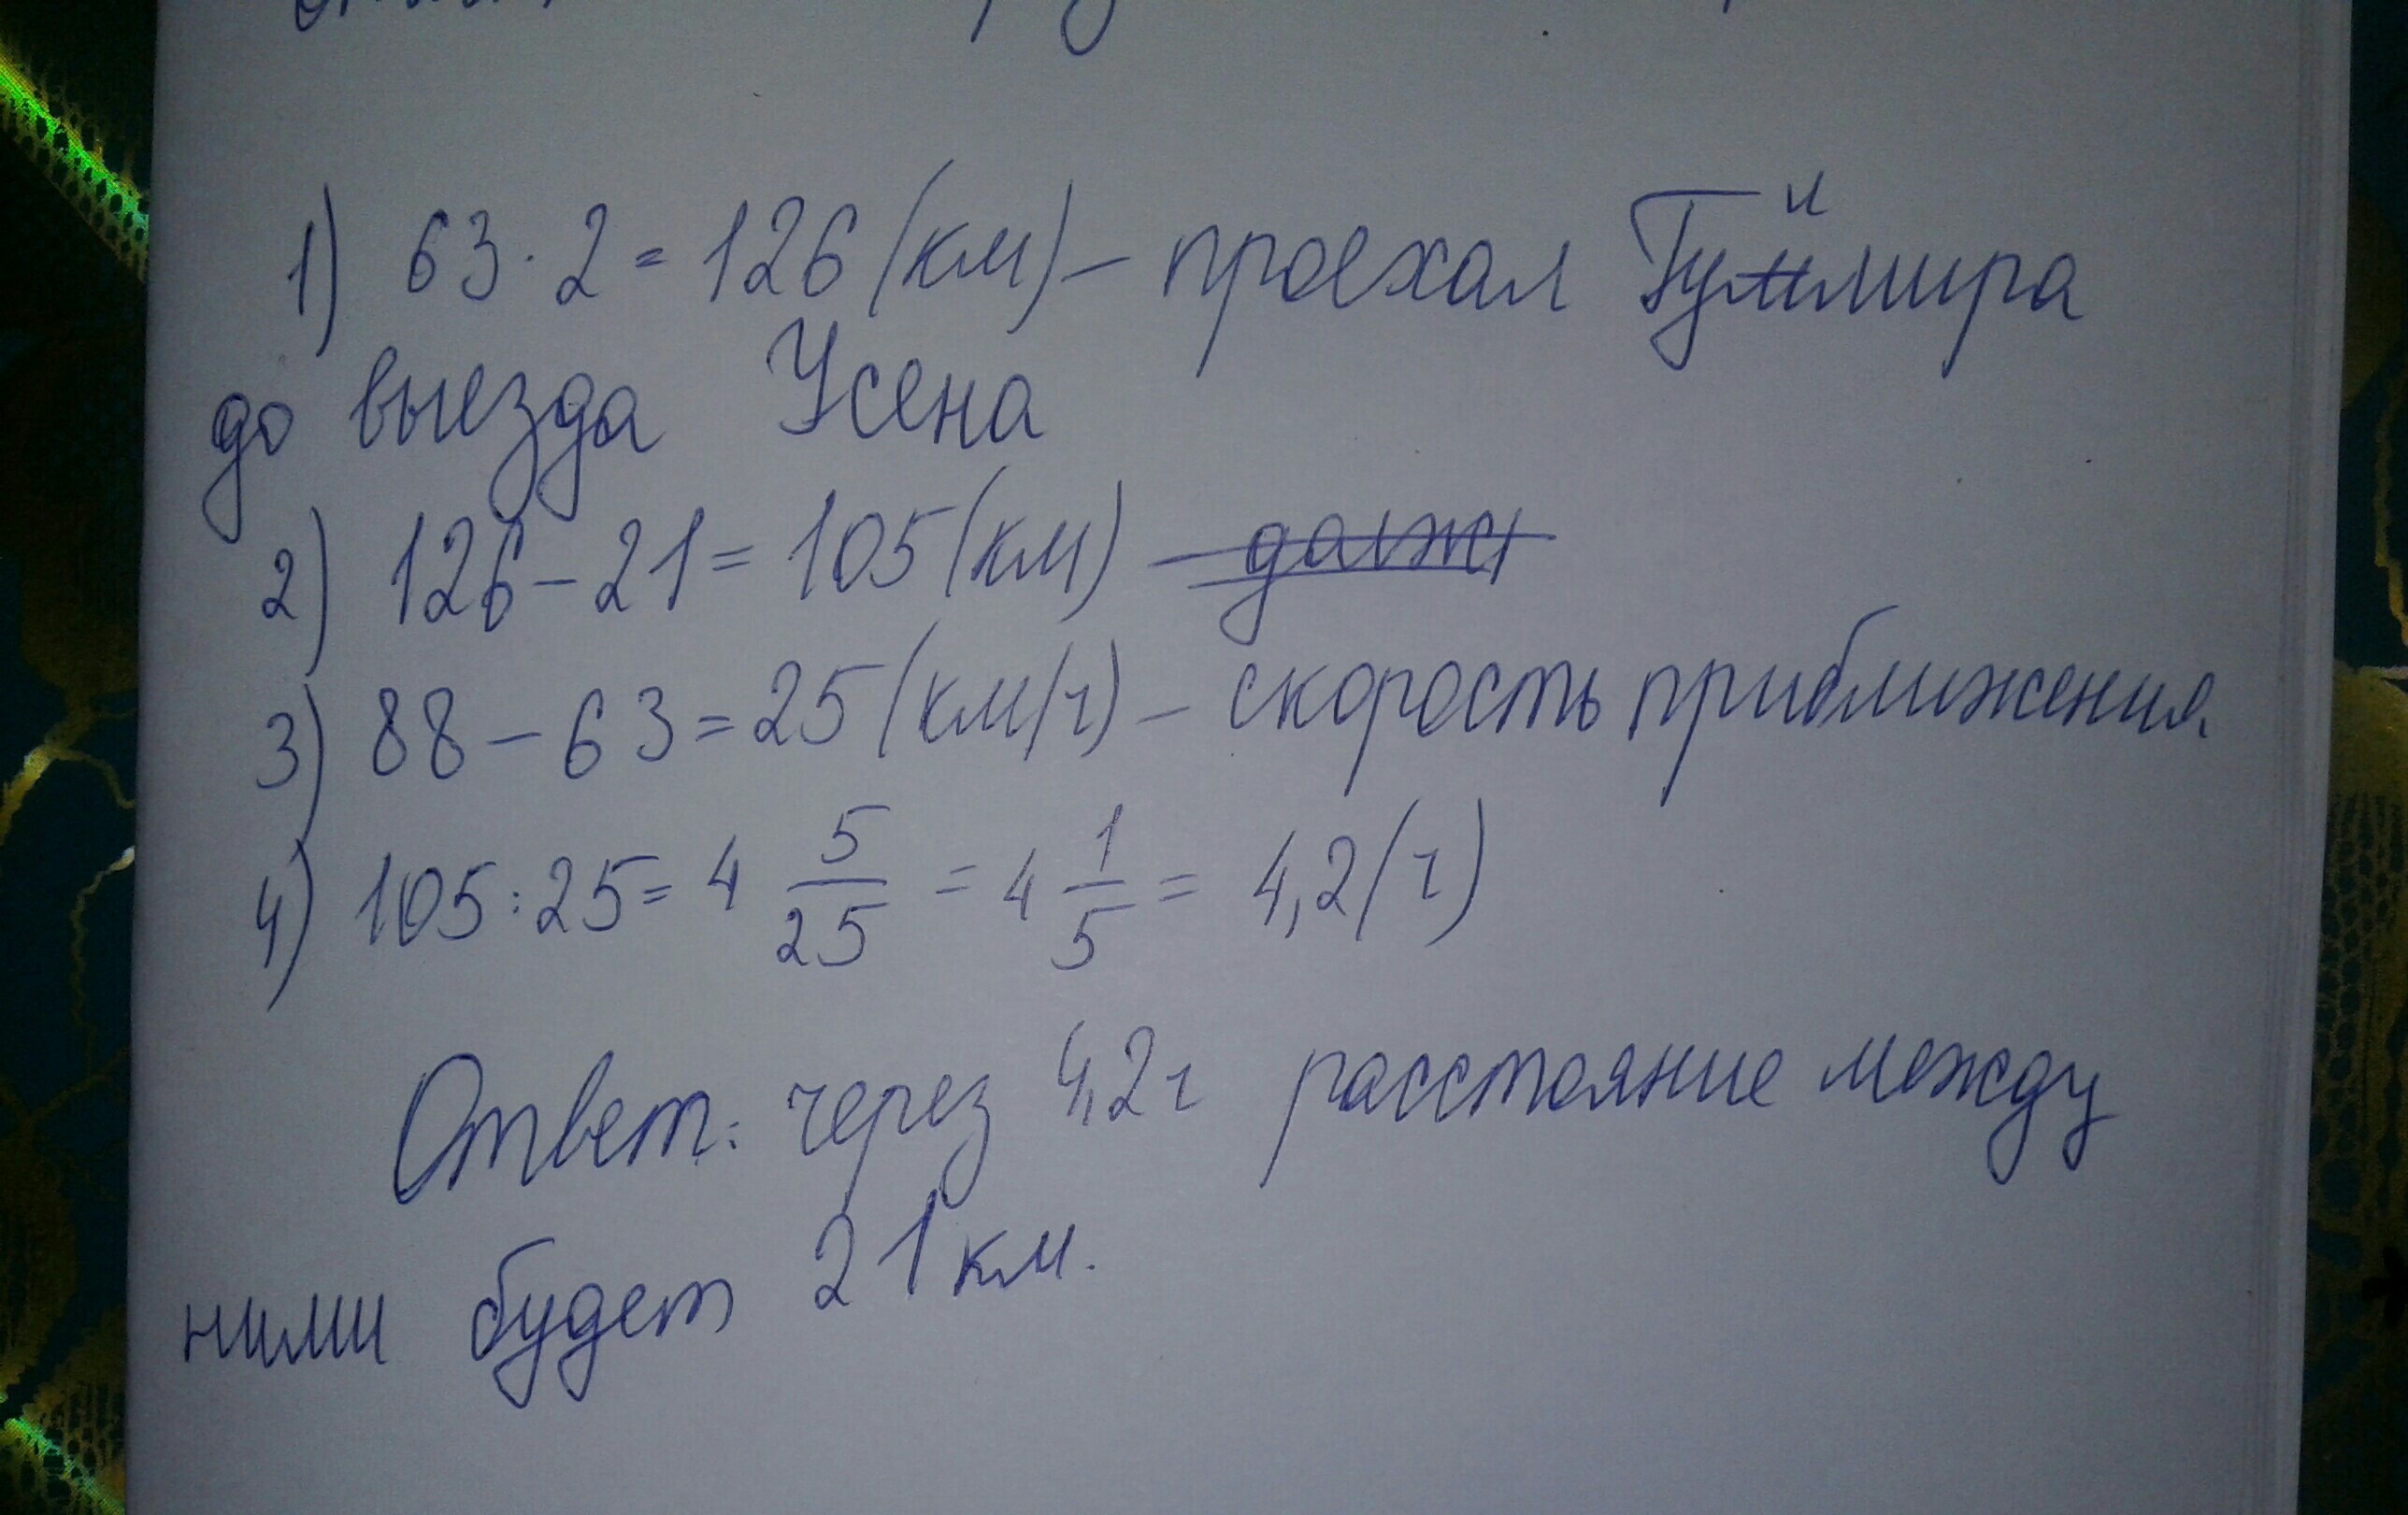 1) 63 · 2 = 126 (км) – проехал Гуймира
до выезда Усена
2) 126 – 21 = 105 (км)
3) 88 – 63 = 25 (км/ч) – скорость приближения
4) 105 : 25 = 4 5/25 = 4 1/5 = 4,2 (ч)
Ответ: через 4,2 ч расстояние между
ними будет 21 км.